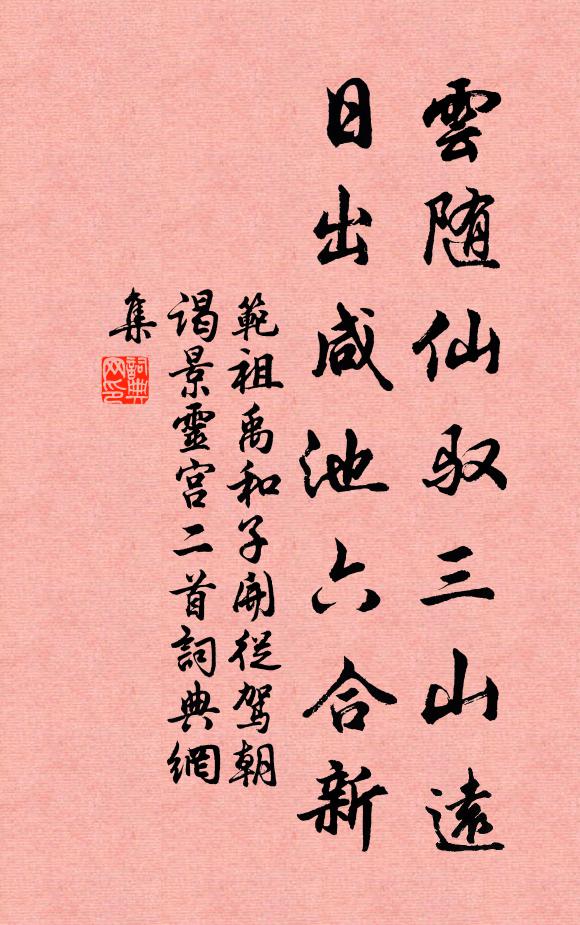 雲随仙驭三山遠
日出咸池六合新
範祖禹和子開從駕朝
谒景靈宫二首詞典網
集
詞典網印